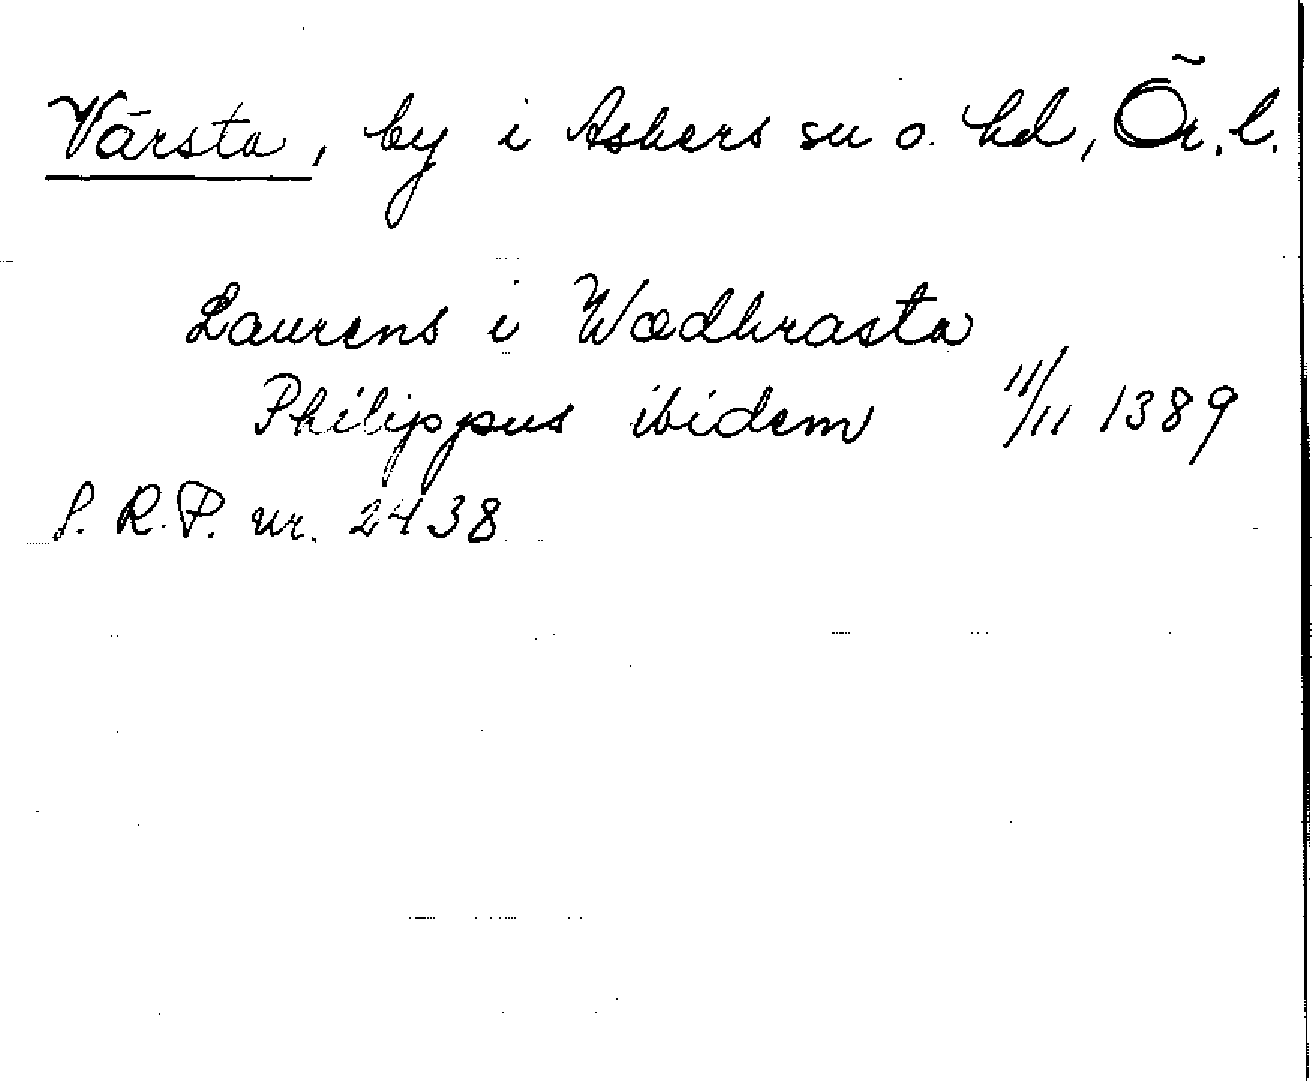 Värsta, by i Askers sn o. hd, Ör. l.
Laurens i Wædhrasta
Philippus ibidem 11/11 1389
S. R. P. nr. 2438